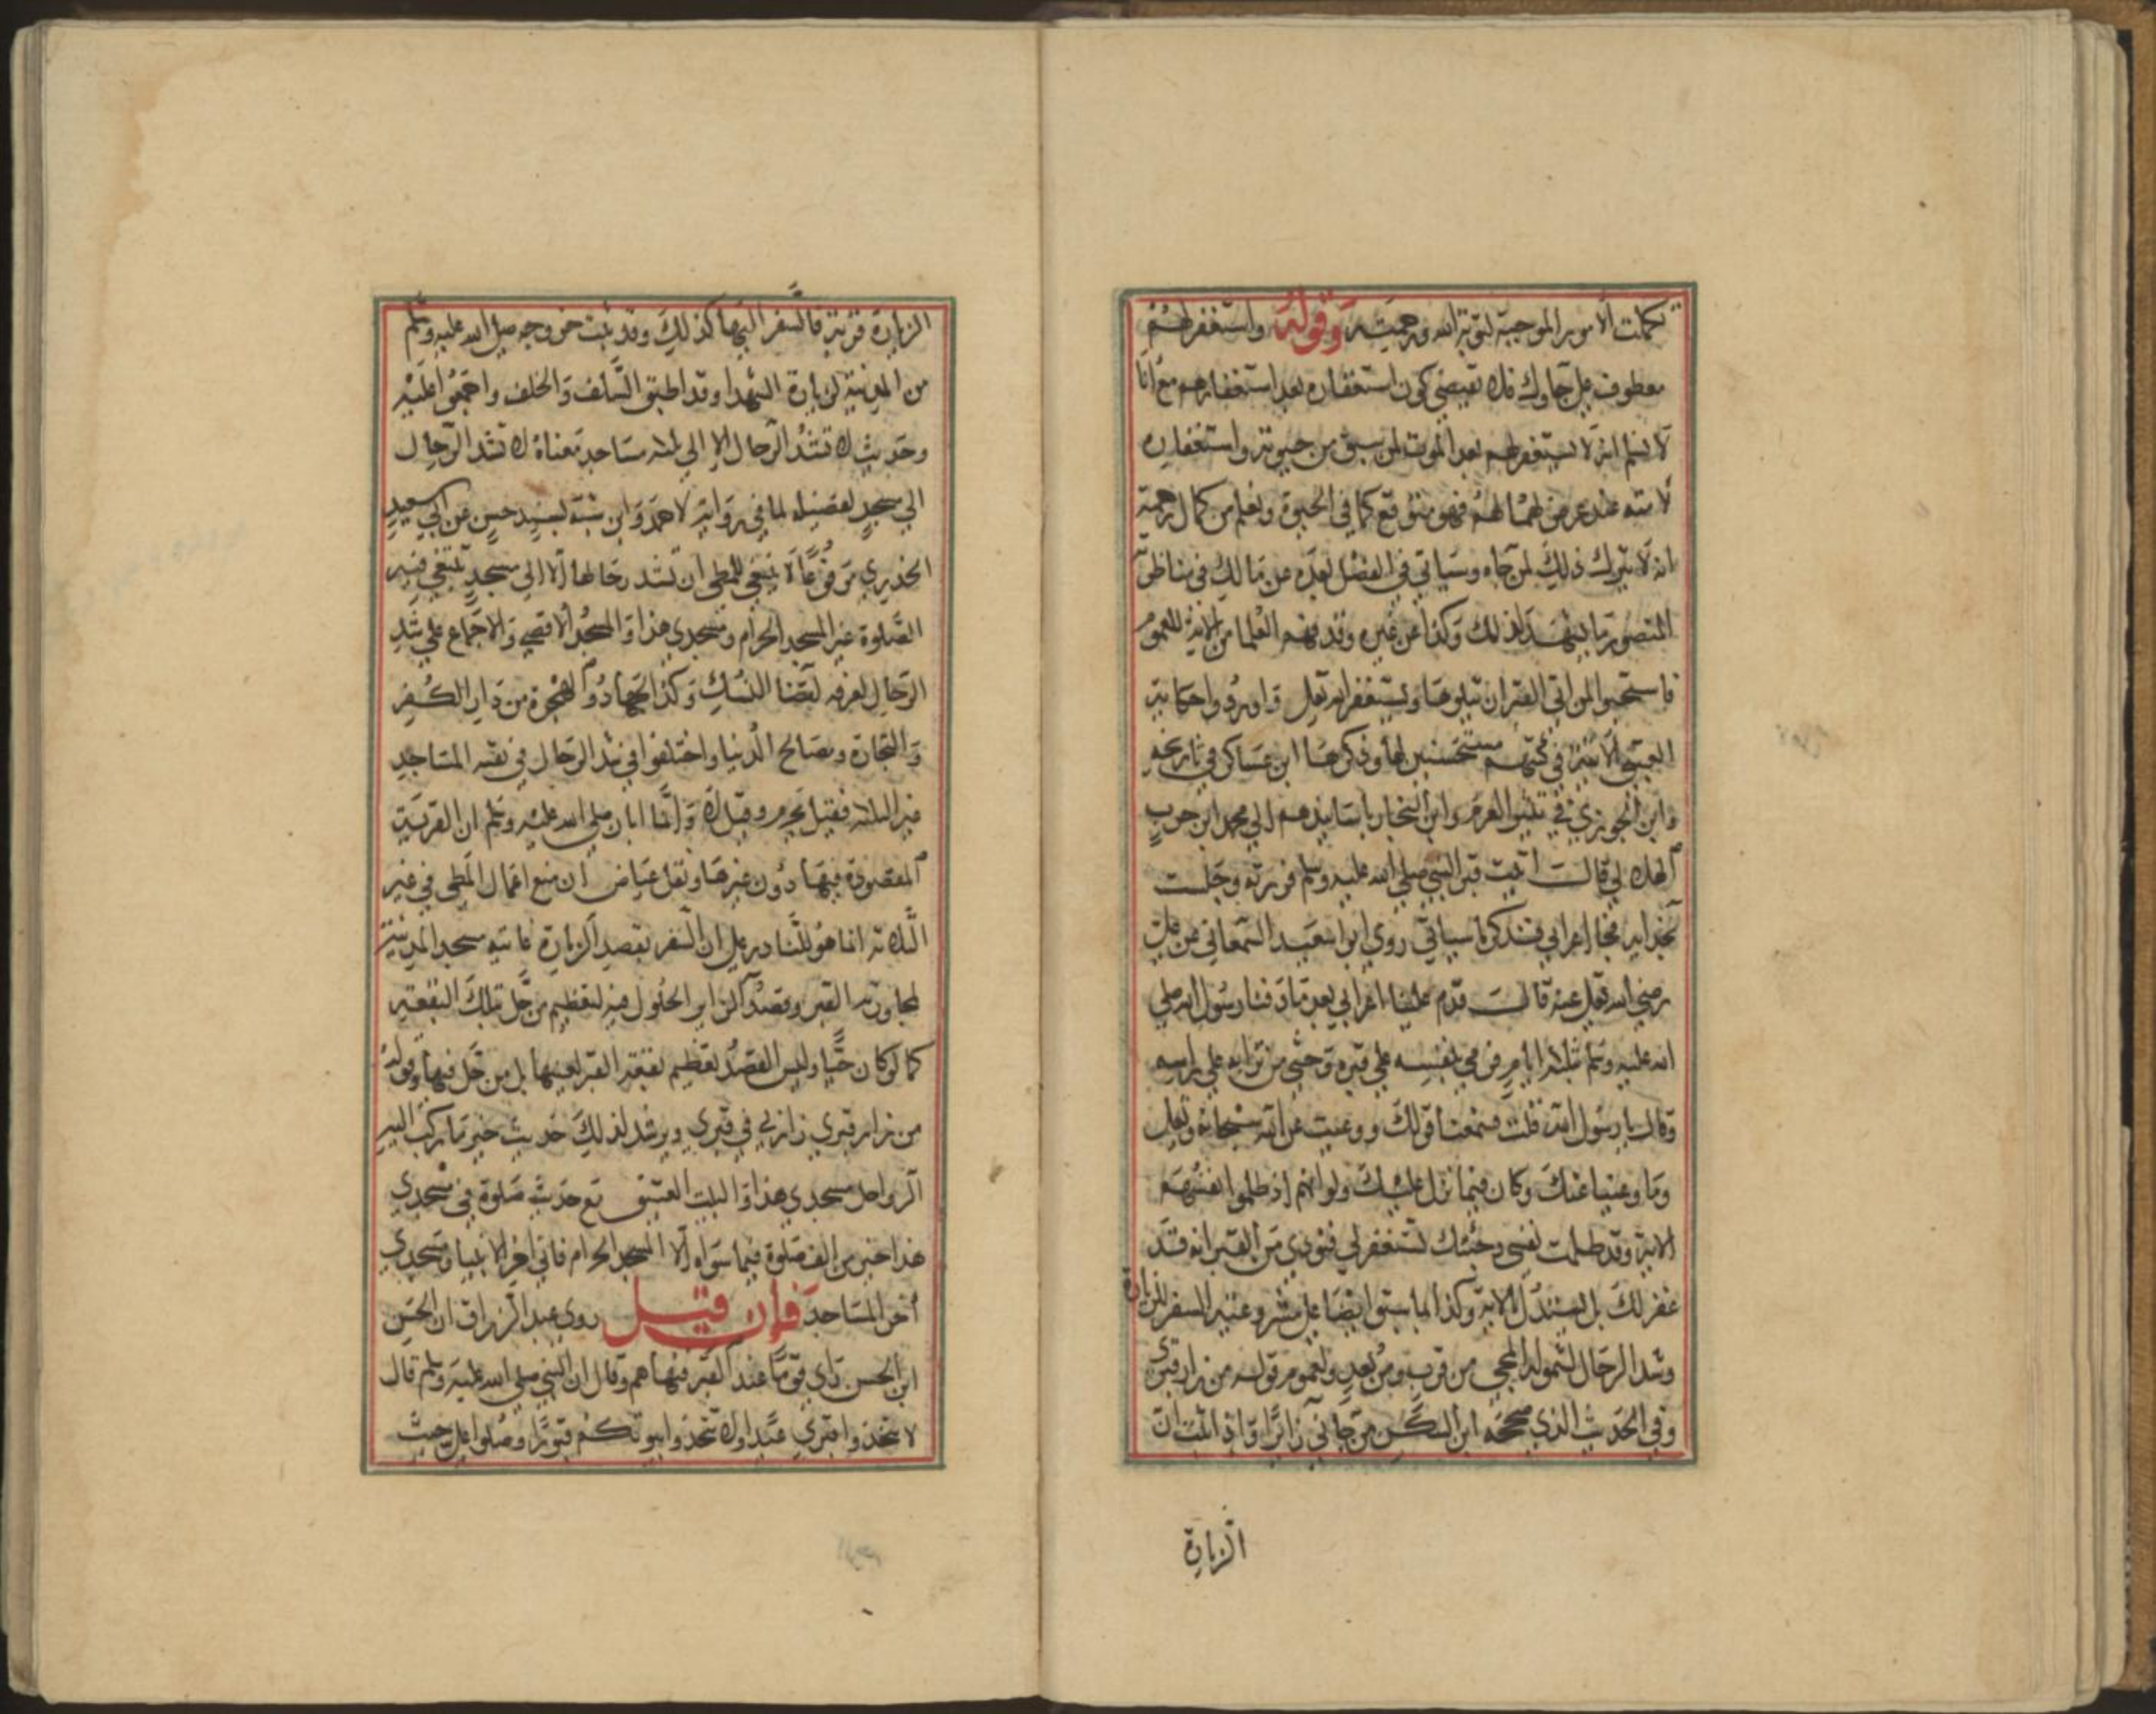 تكملت الامور الموجبة لتوبة الله ورحمته وقوله واستغفر لهم
معطوف على جاوك فلا تقيضي كون استغفاره بعد استغفارهم مع انا
لا نسلم انه لا يستغفر لهم بعد الموت لمن سبق من حيوته واستغفاره
لامته عند عرض لهم فهو متوقع كما في الحيوة ونعلم من كمال رحمته
انه لا يترك ذلك لمن جاه وسياتي في الفصل بعده عن مالك في مناظرة
المنصور ما يشهد لذلك وكذا عن غيره وقد فهم العلما من الاية للعموم
فاستحبوا لمن اتى القبر ان يتلوها ويستغفر الله تعلى واوردوا حكاية
العتبي الاتية في كتبهم مستحسنين لها وذكرها ابن عساكر في تاريخه
وابن الجوزي في مثير العزم وابن النجار باسانيدهم الى محمد ابن حرب
الهلالي قال اتيت قبر النبي صلى الله عليه وسلم فزرته وجلست
بحذايه فجا اعرابي فذكر ما سياتي روي ابو سعيد السمعاني عن علي
رضي الله تعلى عنه قال قدم علينا اعرابي بعد ما دفنا رسول الله صلى
الله عليه وسلم بثلثة ايام فرمي بنفسه على قبره وحثى من ترابه على راسه
وقال يا رسول الله قلت فسمعنا قولك ووعيت عن الله سبحانه وتعلى
وما وعينا عنك وكان فيما نزل عليك ولو انهم اذ ظلموا انفسهم
الاية وقد ظلمت نفسي وجئتك تستغفر لي فنودي من القبر انه قد
غفر لك بل يستدل بالاية وكذا لما سبق ايضا على مشروعية السفر للزيارة
وشد الرحال لشموله المجي من قرب ومن بعد ولعموم قوله من زار قبري
وفي الحديث الذي صححه ابن السكن من جاني زائرا واذا ثبت ان
الزيارة
الزيارة قربة فالسفر اليها كذلك وقد ثبت خروجه صلى الله عليه وسلم
من المدينة لزيارة الشهدا وقد اطبق السلف والخلف واجمعوا عليه
وحديث لا تشد الرحال الا الى ثلثة مساجد معناه لا تشد الرحال
الى مسجد لفضيله لما في رواية لاحمد وابن شبة بسند حسن عن ابي سعيد
الخدري مرفوعا لا ينبغي للمطي ان تشد رحالها الا الى مسجد تبتغي فيه
الصلوة غير المسجد الحرام ومسجدي هذا والمسجد الاقصى والاجماع على شد
الرحال لعرفه لقضا النسك وكذا الجهاد والهجرة من دار الكفر
والتجارة ومصالح الدنيا واختلفوا في شد الرحال في نقيه المساجد
غير الثلثة فقيل يحرم وقيل لا وانما ابان صلى الله عليه وسلم ان القربة
المقصودة فيها دون غيرها ونقل عياض ان منع اعمال المطي في غير
الثلاثة انما هو للناذر على ان السفر بقصد الزيارة غايته مسجد المدينة
لمجاورته القبر وقصد الزاير الحلول فيه لتعظيم من حل بتلك البقعة
كما لو كان حيا وليس القصد تعظيم بقعة القبر لعينها بل من حل فيها وقوله
من زار قبري زارني في قبري ويرشد لذلك حديث خير ما ركبت اليه
الرواحل مسجدي هذا والبيت العتيق مع حديث صلوة في مسجدي
هذا خير من الف صلوة فيما سواه الا المسجد الحرام فاني اخر الانبيا ومسجدي
اخر المساجد فان قيل روى عبد الرزاق ان الحسن
ابن الحسن راي قوما عند القبر فنهاهم وقال ان النبي صلى الله عليه وسلم قال
لا تتخذوا قبري عيدا ولا تتخذوا بيوتكم قبورا وصلوا على حيث